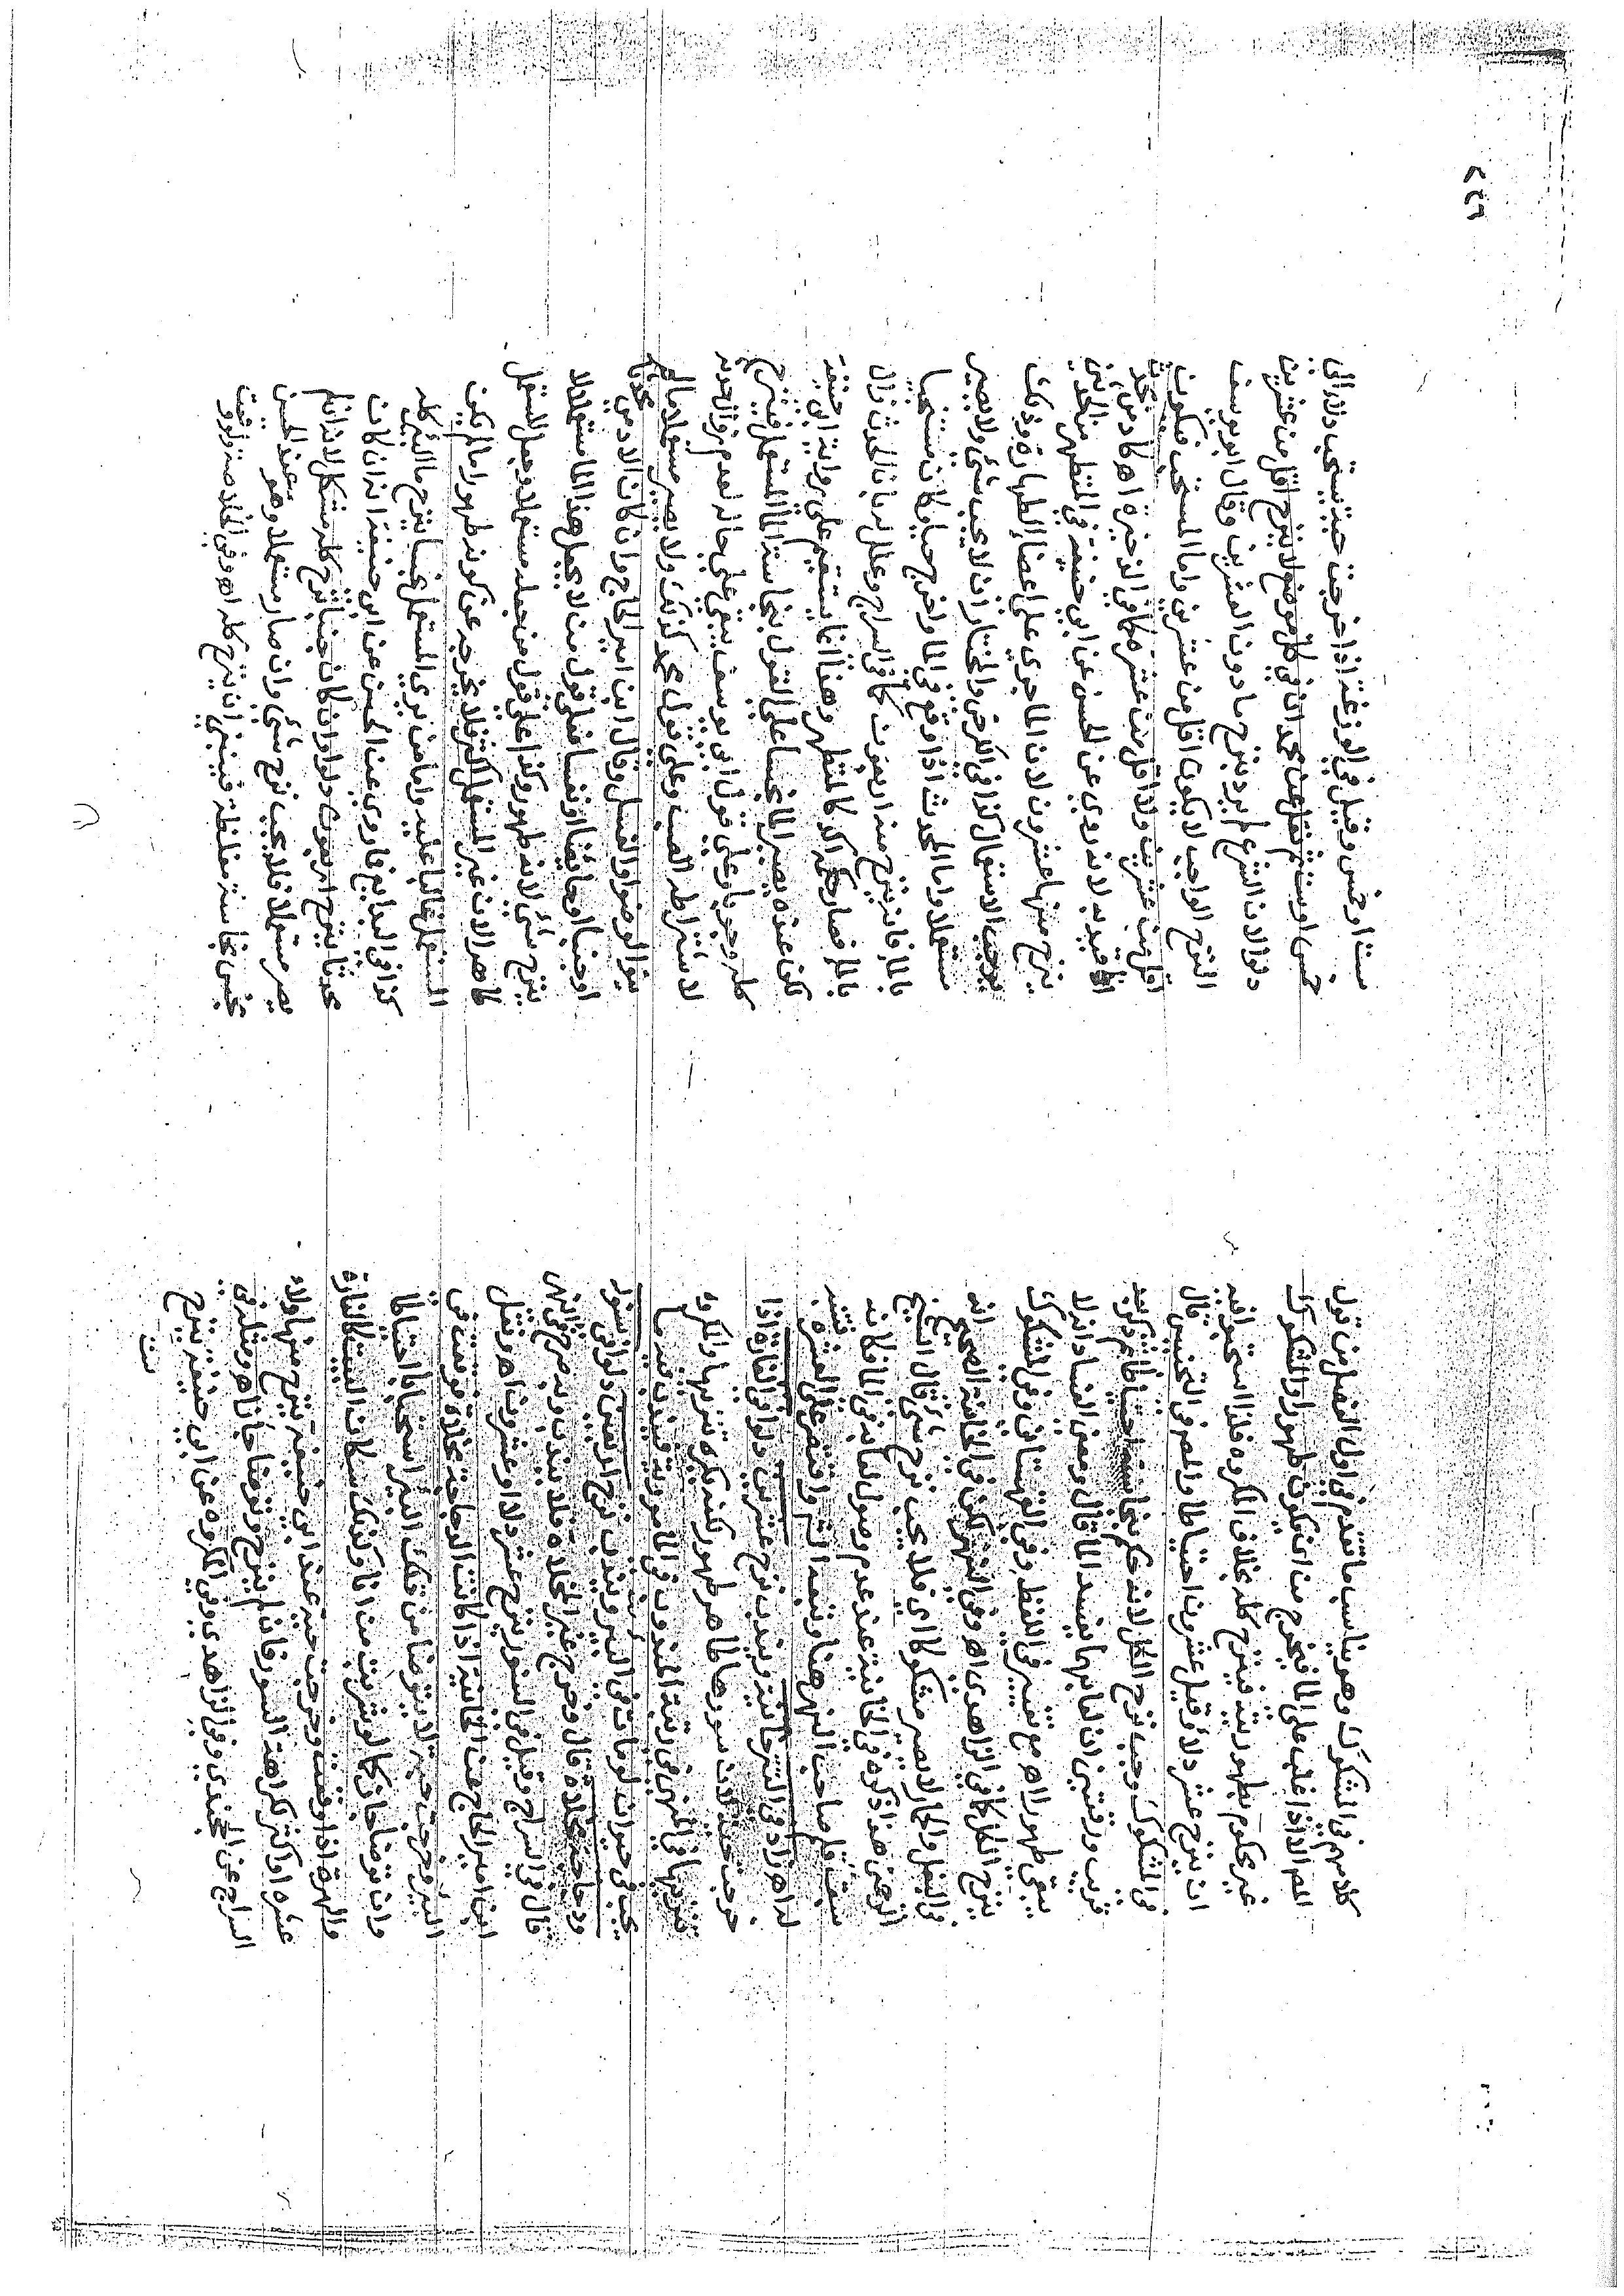 كلامهم في المشكوك وهو يناسب ما تقدم في اول الفصل من قول
المص الا اذا غلب على الماء فيخرج من ان يكون طهورا والمشكوك
غير محكوم بطهوريته فينزح كله بخلاف المكروه فلذا استحبوا فيه
ان ينزح عشر دلاء وقيل عشرون احتياطا والمص في التجنيس قال
في المشكوك وجب نزح الكل لانه حكم بنجاسته احتياطا ثم ذكر بعد
قريب ورقتين ان لعابهما يفسد الماء قال ومعنى الفساد انه لا
يبقى طهورا اهـ مع تغيير في اللفظ وفي القهستاني وفي المشكوك
ينزح الكل كما في الزاهدي اهـ وفي النهر لكن في الخانية الصحيح انه
في البغل والحمار لا يصير مشكوكا اي فلا يجب نزح شئ قال الشيخ
هذا ذكره في الخانية عند عدم وصول لعابه في الماء فكانه
سبق قلم صاحب النهر هنا وتبعه الشر واقتصر على العشرة فتنبه
له اهـ زاد في التترخانية ويندب نزح عشرين دلوا في الفارة اذا
خرجت حية لان سورها طاهر طهور لكنه يكره تنزيها والمكروه
تنزيها في النهي في رتبة المندوب في المامور به فيندب فيه ما
يجب في حيوان لو مات في البير ويندب نزح اربعين دلوا في سنور
ودجاجة مخلاة قال وخرج غير المخلاة فلا يندب وبه صرح في النهر
قال في السراج وقيل في السنور ينزح عشر دلاء او عشرون اهـ ونقل
ابن امير الحاج عن الخانية اذا كانت الدجاجة مخلاة فوقعت في
البئر وخرجت حية لا يتوضا من تلك البئر استحبابا احتياطا
وان توضا جاز كما لو شربت من انا وكذلك سكان البيت كالفارة
والهرة اذا وقعت وخرجت حية عند ابي حنيفة ينزح منها دلاء
عشرة او اكثر لكراهة السور فان لم ينزح وتوضا جاز اهـ ومثله في
السراج عن الخجندي وفي الزاهدي وفي المكروه عن ابي حنيفة ينزح
ستا
٢٤٦
ستا او خمس وقيل في الوزغة اذا خرجت حية يستحب دلاء الى
خمس او ست ثم نقل عن محمد ان في كل موضع لا ينزح اقل من عشرين
دلوا لان الشرع لم يرد بنزح ما دون العشرين وقال ابو يوسف
النزح الواجب لا يكون اقل من عشرين واما المستحب فيكون
اقل من عشرين ولا اقل من عشر كما في الذخيرة اهـ كادمي محدث
قيد به لانه روي عن الحسن عن ابي حنيفة في المتطهر من الحدثين
ينزح منها عشرون لان الماء جرى على اعضاء الطهارة وذلك
يوجب الاستعمال كذا في الكرخي والمختار ان لا يجب شئ ولا يصير
مستعملا واما المحدث اذا وقع في الماء واخرج حيا وكان مستنجيا
بالماء فانه ينزح منه اربعون كما في السراج وعلل له بان الحدث زال
بالماء فصار حكمه اكد كالمتطهر وهذا انما يستقيم على رواية ابي حنيفة
لكن عنده يصير الماء نجسا على القول بنجاسة الماء المستعمل فينزح
كله وجوبا وعلى قول ابي يوسف يبقى على حاله لعدم زوال حدثه
لاشتراطه الصب وعلى قول محمد كذلك ولا يصير مستعملا ما لم
ينو الوضوا او الغسل وقال ابن امير الحاج وان كان الادمي محدثا
او جنبا او حائضا او نفسا فعلى قول من لا يجعل هذا الماء مستعملا لا
ينزح شئ لانه طهور وكذا على قول من جعله مستعملا وجعل المستعمل
طاهرا لان غير المستعمل اكثر فلا يخرجه عن كونه طهورا ما لم يكن
المستعمل غالبا عليه واما من يرى المستعمل نجسا ينزح ماء البئر كله
كذا في البدايع فما روي عن الحسن عن ابي حنيفة انه ان كان
محدثا ينزح اربعون دلوا وان كان جنبا نزح كله مشكل لانه ان لم
يصر مستعملا فلا يجب نزح شئ وان صار مستعملا وهو عند الحسن
نجس نجاسة مغلظة فينبغي ان ينزح كله اهـ وفي الخلاصة ولو وقعت